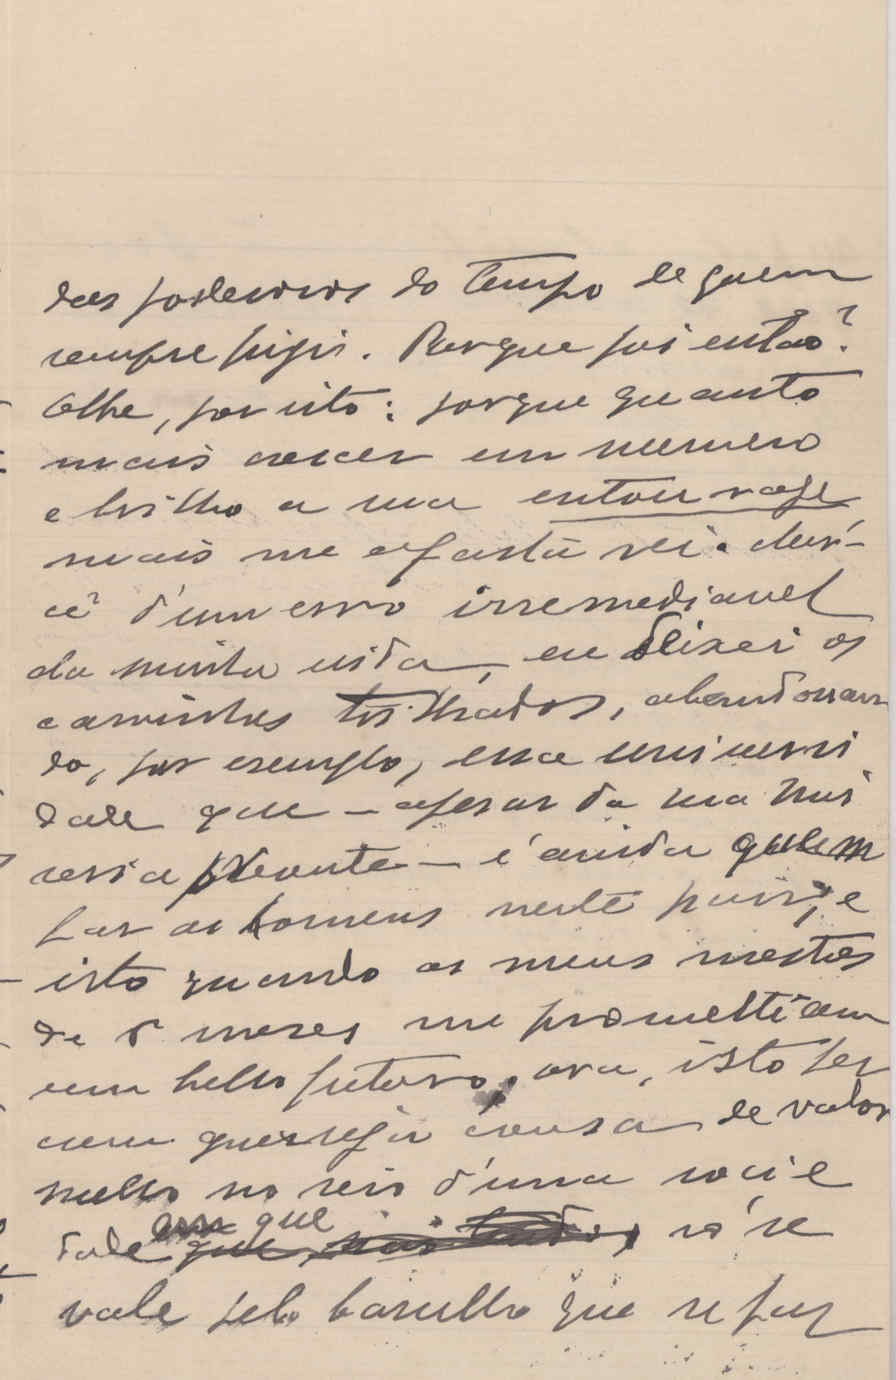 dos poderosos do tempo de quem
sempre fugi. Porque foi então?
Olhe, por isto: porque quanto
mais crescer em numero
e brilho a sua entourage
mais me afastarei.
d'um erro irremediavel
da minha vida, eu deixei os
caminhos trilhados, abandonan
do, por exemplo, essa universi
dade que – apesar da sua mi
seria presente – é ainda quem
faz os homens neste paiz, e
isto quando os meus mestres
de 5 mezes me promettiam
um bello futuro, ora, isto fez
com que seja cousa de valor
nullo no seio d'uma socie
dade em que só se
vale pelo barulho que se faz